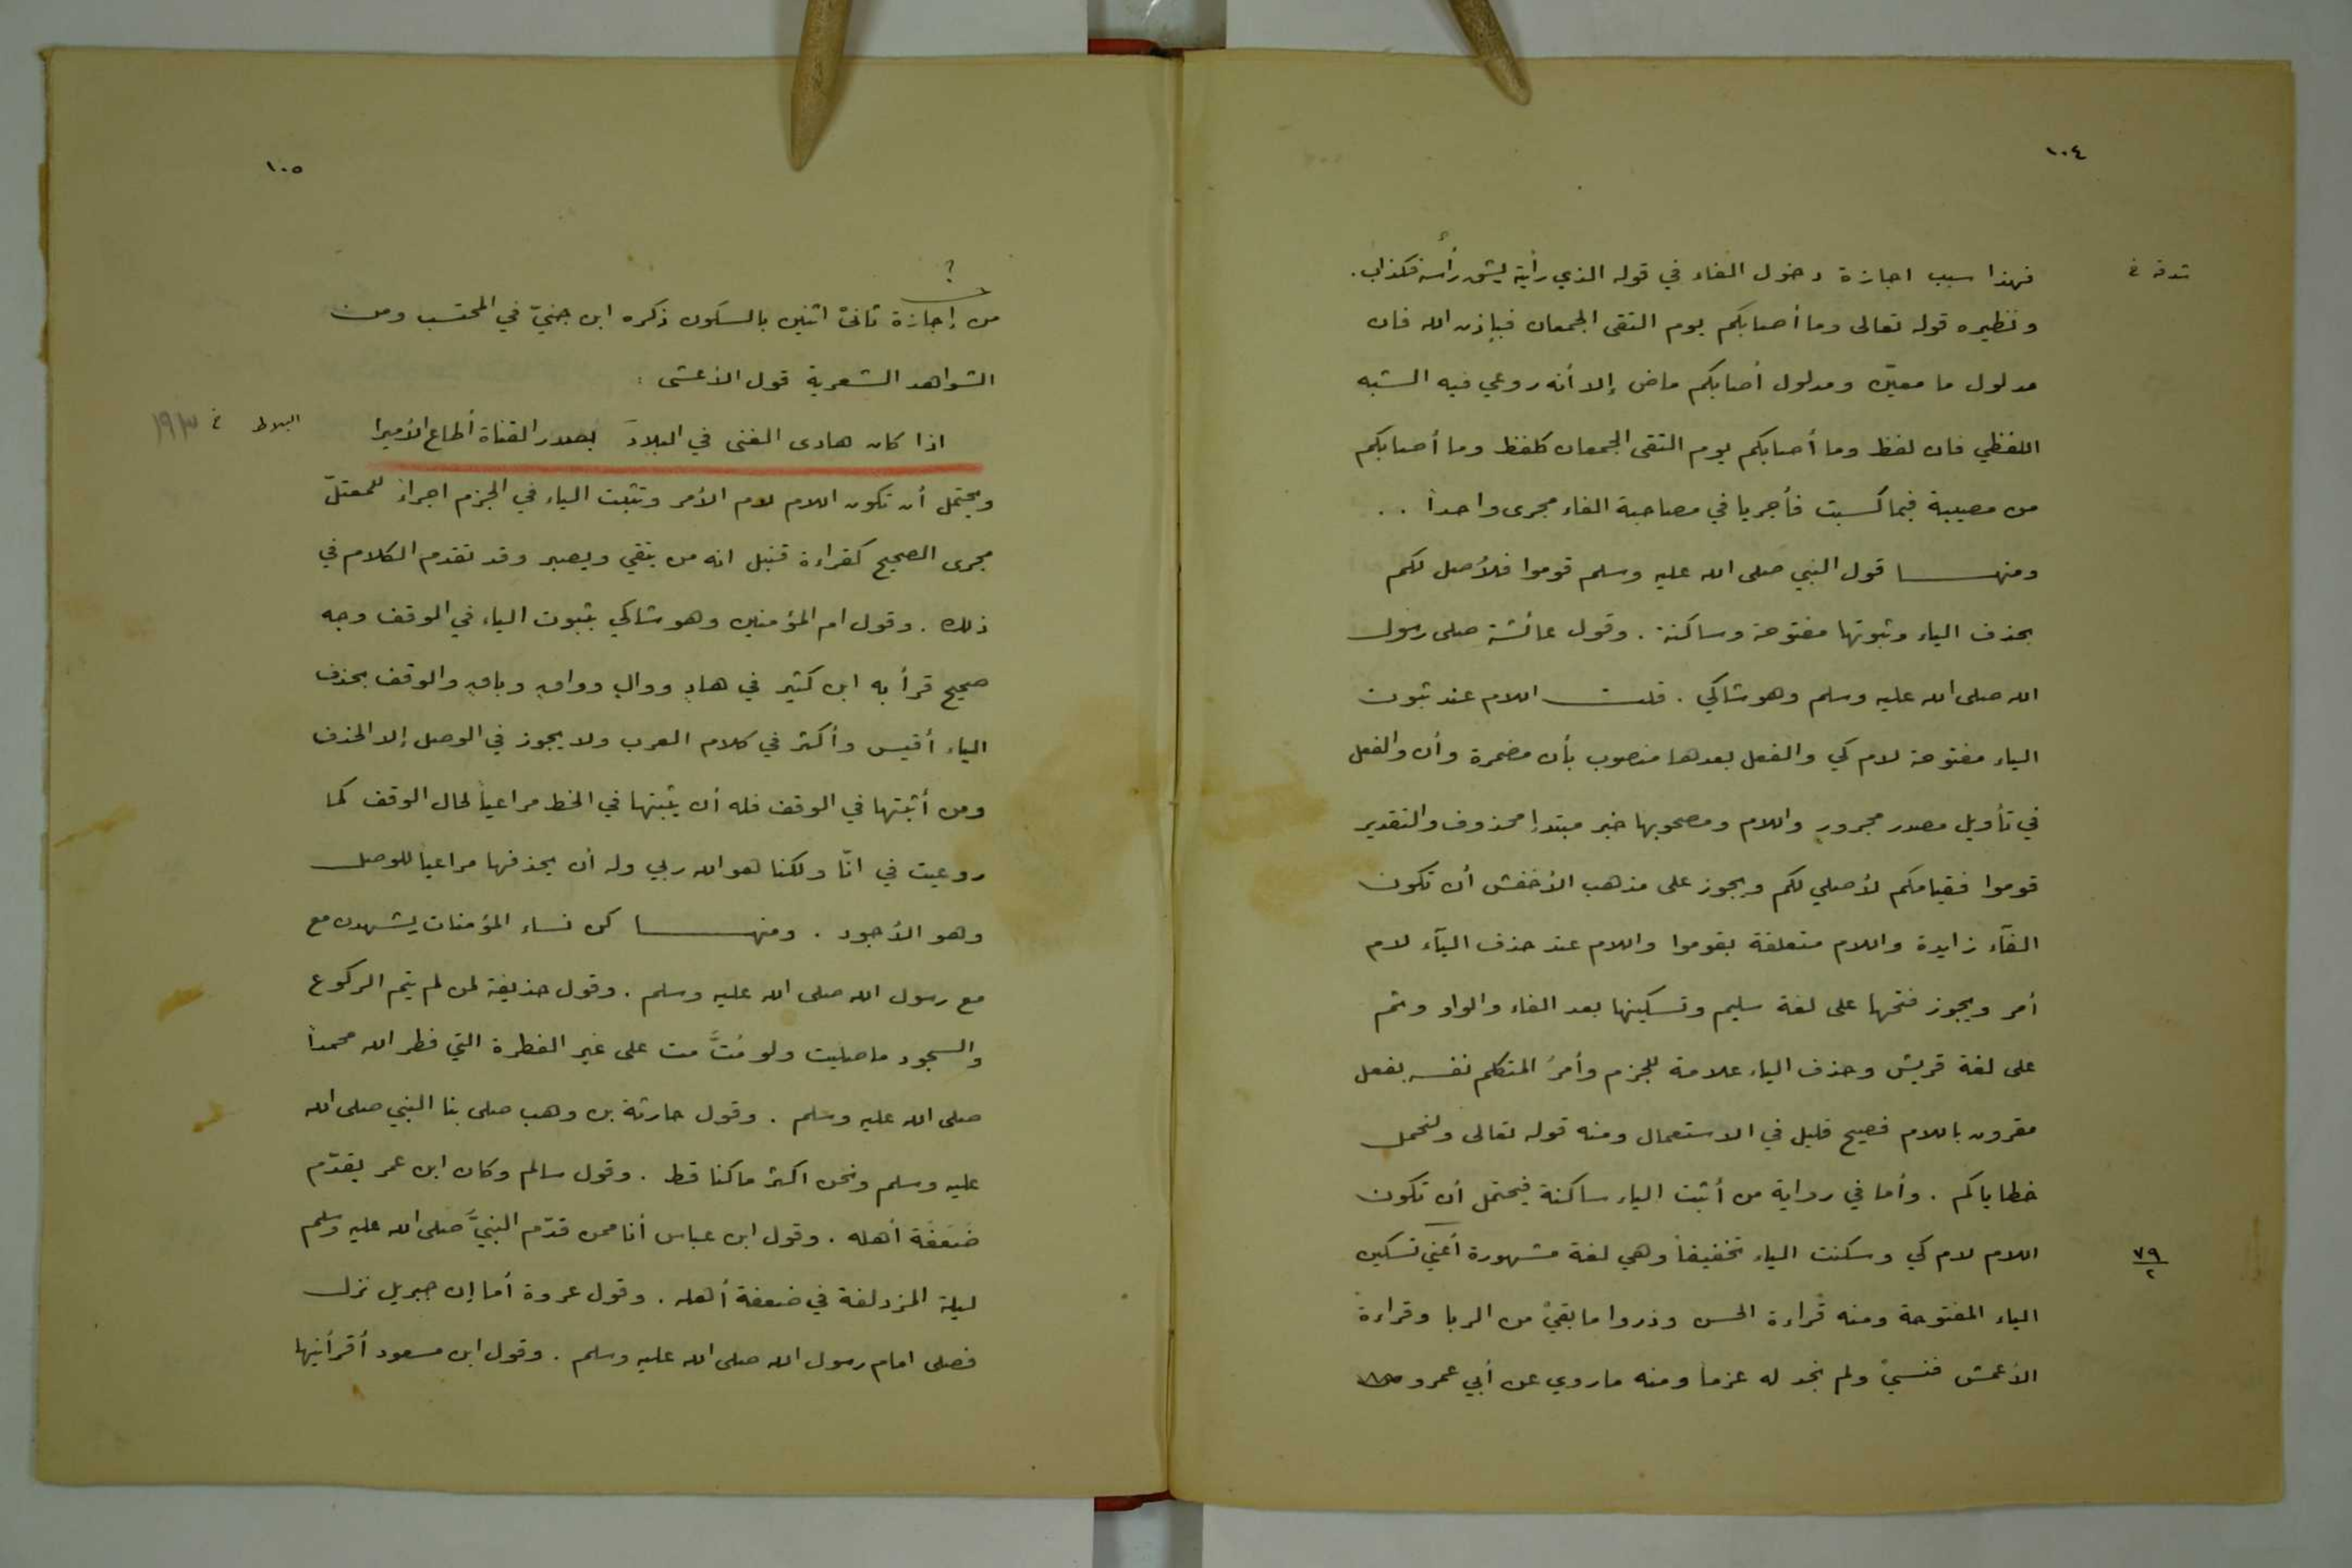 ١٠٤
فهذا سبب اجازة دخول الفاء في قوله الذي رأيته يشق رأسه فكذاب.
ونظيره قوله تعالى وما أصابكم يوم التقى الجمعان فبإذن الله فان
مدلول ما معيّن ومدلول أصابكم ماض إلا أنه روعي فيه الشبه
اللفظي فان لفظ وما أصابكم يوم التقى الجمعان كلفظ وما أصابكم
من مصيبة فبما كسبت فأجريا في مصاحبة الفاء مجرى واحداً ..
ومنهـا قول النبي صلى الله عليه وسلم قوموا فلأصل لكم
بحذف الياء وثبوتها مفتوحة وساكنة . وقول عائشة صلى رسول
الله صلى الله عليه وسلم وهو شاكي . قلت اللام عند ثبوت
الياء مفتوحة لام كي والفعل بعدها منصوب بأن مضمرة وأن والفعل
في تأويل مصدر مجرور واللام ومصحوبها خبر مبتدإ محذوف والتقدير
قوموا فقيامكم لأصلي لكم ويجوز على مذهب الأخفش أن تكون
الفآء زايدة واللام متعلقة بقوموا واللام عند حذف اليآء لام
أمر ويجوز فتحها على لغة سليم وتسكينها بعد الفاء والواو وثم
على لغة قريش وحذف الياء علامة للجزم وأمرُ المتكلم نفسه بفعل
مقرون باللام فصيح قليل في الاستعمال ومنه قوله تعالى ولنحمل
خطاياكم . وأما في رواية من أثبت الياء ساكنة فيحتمل أن تكون
اللام لام كي وسكنت الياء تخفيفاً وهي لغة مشهورة أعني تسكين
٧٩
٢
الياء المفتوحة ومنه قراءة الحسن وذروا ما بقيْ من الربا وقراءة
الأعمش فنسيْ ولم نجد له عزماً ومنه ما روي عن أبي عمرو
١٠٥
؟
من إجازة ثانيْ اثنين بالسكون ذكره ابن جنيّ في المحتسب ومن
الشواهد الشعرية قول الأعشى :
اذا كان هادى الفتى في البلاد بصدر القناة أطاع الأميرا
البلاط خ ١٩٣
ويحتمل أن تكون اللام لام الأمر وتثبت الياء في الجزم اجراءً للمعتلّ
مجرى الصحيح كقراءة قنبل انه من يتقي ويصبر وقد تقدم الكلام في
ذلك . وقول ام المؤمنين وهو شاكي بثبوت الياء في الوقف وجه
صحيح قرأ به ابن كثير في هادٍ ووالٍ وواقٍ وباقٍ والوقف بحذف
الياء أقيس وأكثر في كلام العرب ولا يجوز في الوصل إلا الحذف
ومن أثبتها في الوقف فله أن يثبتها في الخط مراعياً لحال الوقف كما
روعيت في انّا ولكنا هو الله ربي وله أن يحذفها مراعياً للوصل
وهو الأجود . ومنهـا كن نساء المؤمنات يشهدن مع
مع رسول الله صلى الله عليه وسلم . وقول حذيفة لمن لم يتم الركوع
والسجود ما صليت ولو مُتَّ مت على غير الفطرة التي فطر الله محمداً
صلى الله عليه وسلم . وقول حارثة بن وهب صلى بنا النبي صلى الله
عليه وسلم ونحن اكثر ما كنا قط . وقول سالم وكان ابن عمر يقدّم
ضَعَفَة أهله . وقول ابن عباس أنا ممن قدّم النبيَّ صلى الله عليه وسلم
ليلة المزدلفة في ضعفة أهله . وقول عروة أما إن جبريل نزل
فصلى امام رسول الله صلى الله عليه وسلم . وقول ابن مسعود أقرأنيها